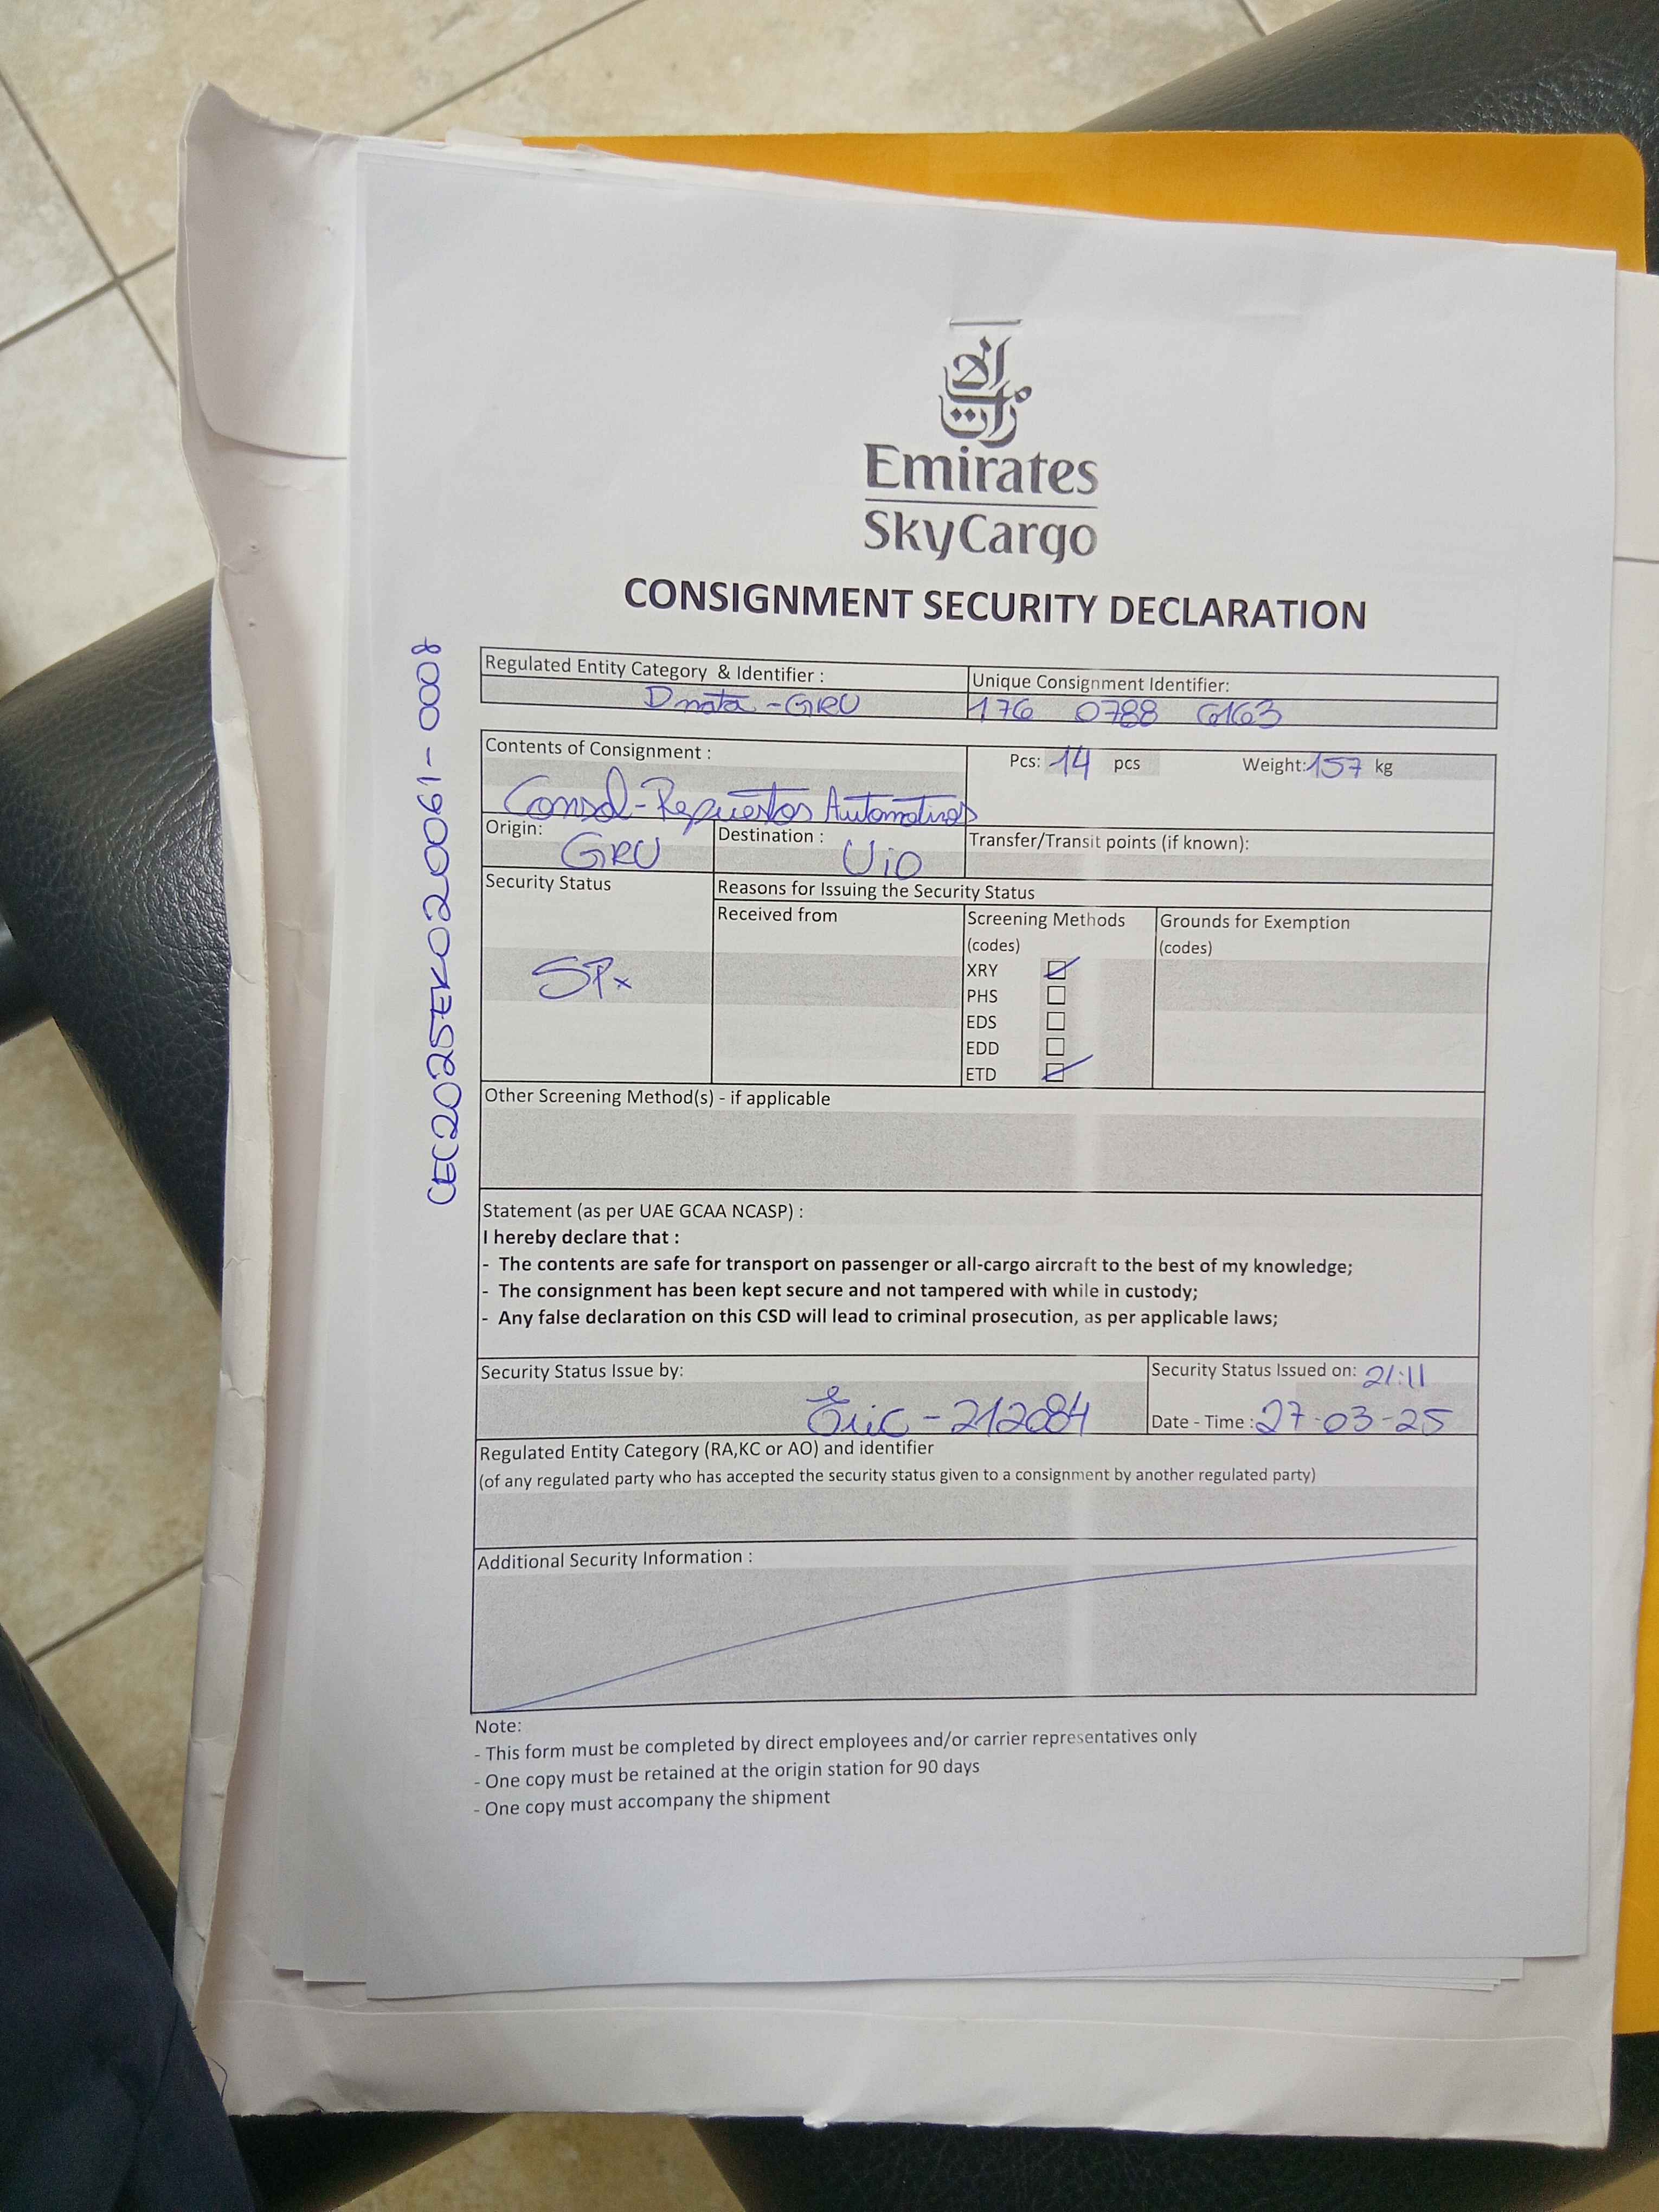 Emirates
SkyCargo
CONSIGNMENT SECURITY DECLARATION
CEC2025EK020061-0008
Regulated Entity Category & Identifier :
Dnata - GRU
Unique Consignment Identifier:
176 0788 6163
Contents of Consignment :
Consol - Repuestos Automotivos
Pcs: 14 pcs
Weight: 157 kg
Origin:
GRU
Destination :
UiO
Transfer/Transit points (if known):
Security Status
SPx
Reasons for Issuing the Security Status
Received from
Screening Methods
(codes)
XRY
PHS
EDS
EDD
ETD
Grounds for Exemption
(codes)
Other Screening Method(s) - if applicable
Statement (as per UAE GCAA NCASP) :
I hereby declare that :
- The contents are safe for transport on passenger or all-cargo aircraft to the best of my knowledge;
- The consignment has been kept secure and not tampered with while in custody;
- Any false declaration on this CSD will lead to criminal prosecution, as per applicable laws;
Security Status Issue by:
Eric - 212084
Security Status Issued on: 21:11
Date - Time : 27-03-25
Regulated Entity Category (RA,KC or AO) and identifier
(of any regulated party who has accepted the security status given to a consignment by another regulated party)
Additional Security Information :
Note:
- This form must be completed by direct employees and/or carrier representatives only
- One copy must be retained at the origin station for 90 days
- One copy must accompany the shipment